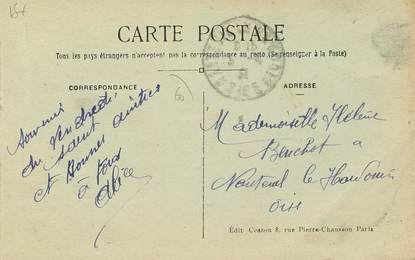 15€
CARTE POSTALE
Tous les pays étrangers n'acceptent pas la correspondance au recto (Se renseigner à la Poste)
CORRESPONDANCE
Souvenir
du Vendredi
Saint
et Bonnes
à tous
Alice
ADRESSE
Mademoiselle Hélène
à
Nanteuil le Haudouin
Oise
Edit Cosson 8, rue Pierre-Chausson Paris